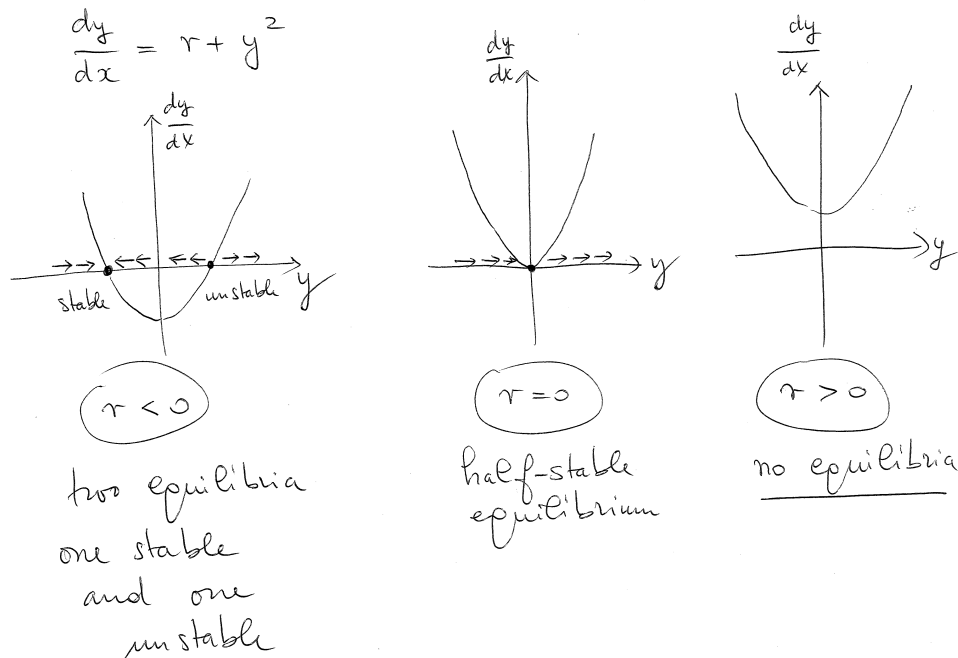 dy/dx = r + y²
dy/dx
→→ ←← ←← →→
y
stable
unstable
r < 0
two equilibria
one stable
and one
unstable
dy/dx
→→→ →→→
y
r = 0
half-stable
equilibrium
dy/dx
y
r > 0
no equilibria